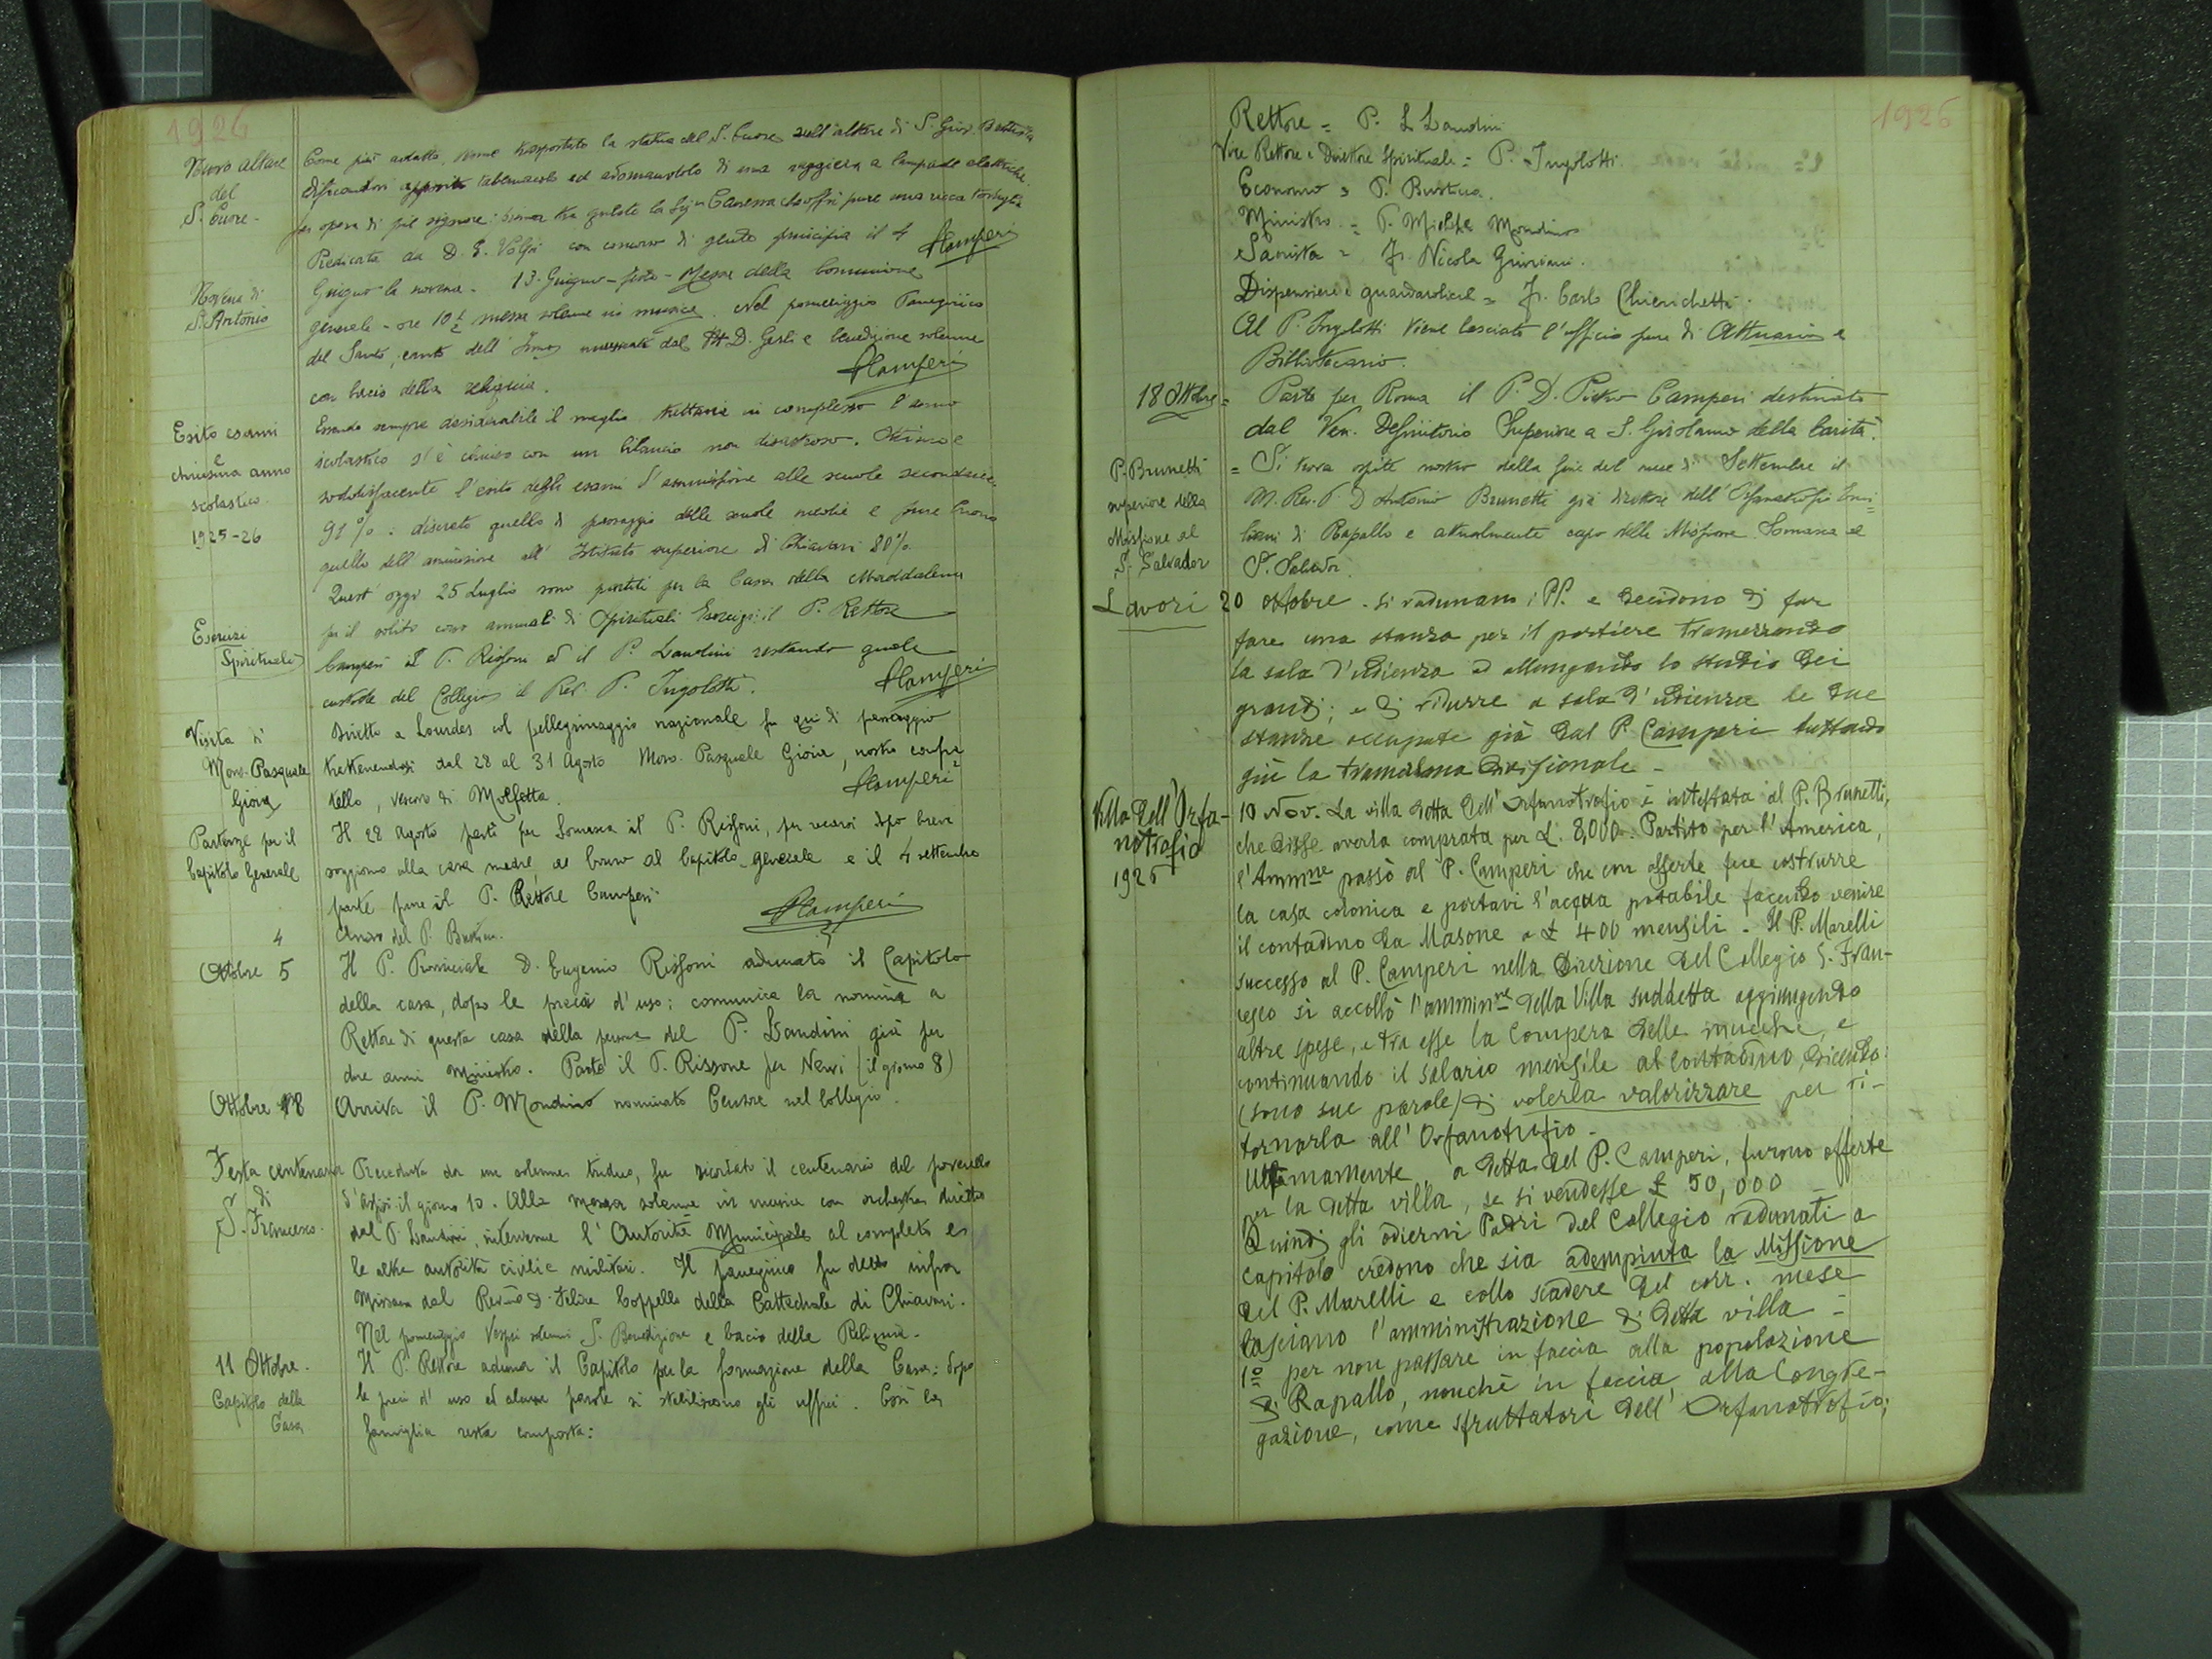 1926
Nuovo altare
del
S. Cuore -
Come più adatto, venne trasportata la statua del S. Cuore sull'altare di S. Giov. Battista
edificandovi apposito tabernacolo ed adornandolo di una raggiera a lampade elettriche.
per opera di pie signore: prima tra queste la Sig.ra Canessa che offrì pure una ricca tovaglia
PCamperi
Novena di
S. Antonio
Predicata da D. E. Volpi con concorso di gente principia il 4
Giugno la novena - 13. Giugno - festa - Messa della Comunione
generale - ore 10 ½ messa solenne in musica. Nel pomeriggio Panegirico
del Santo, canto dell'Inno musicato dal M. D. Gesli e benedizione solenne
con bacio della reliquia.
PCamperi
Esito esami
e
chiusura anno
scolastico
1925-26
Essendo sempre desiderabile il meglio tuttavia in complesso l'anno
scolastico s'è chiuso con un bilancio non disastroso. Ottimo e
soddisfacente l'esito degli esami d'ammissione alle scuole secondarie
91%: discreto quello di passaggio delle scuole medie e pure buono
quello dell'ammissione all'Istituto superiore di Chiavari 80%.
Esercizi
Spirituali
Quest'oggi 25 Luglio sono partiti per la Casa della Maddalena
per il solito corso annuale di Spirituali Esercizi: il P. Rettore
Camperi il P. Rissoni ed il P. Landini restando quale
custode del Collegio il Rev. P. Ingolotti.
PCamperi
Visita di
Mons. Pasquale
Gioia
Diretto a Lourdes col pellegrinaggio nazionale fu qui di passaggio
trattenendosi dal 28 al 31 Agosto Mons. Pasquale Gioia, nostro confra
tello, vescovo di Molfetta.
PCamperi
Partenze per il
Capitolo Generale
Il 28 Agosto partì per Somasca il P. Rissoni, per recarsi dopo breve
soggiorno alla casa madre, al Capitolo generale e il 4 settembre
parte pure il P. Rettore Camperi
PCamperi
4
Arrivo del P. Bustica.
Ottobre 5
Il P. Provinciale D. Eugenio Rissoni adunato il Capitolo
della casa, dopo le preci d'uso: comunica la nomina a
Rettore di questa casa della persona del P. Landini già per
due anni Ministro. Parte il P. Rissone per Nervi (il giorno 8)
Ottobre 8
Arriva il P. Mondino nominato Censore nel Collegio.
Festa centenaria
di
S. Francesco.
Preceduta da un solenne triduo, fu ricordato il centenario del poverello
d'Assisi il giorno 10. Alla messa solenne in musica con orchestra diretta
dal P. Landini, intervenne l'Autorità Municipale al completo e
le altre autorità civili e militari. Il panegirico fu detto infra
Missam dal Rev.mo D. Felice Coppello della Cattedrale di Chiavari.
Nel pomeriggio Vespri solenni S. Benedizione e bacio della Reliquia.
11 Ottobre.
Capitolo della
Casa
Il P. Rettore aduna il Capitolo per la formazione della Casa: dopo
le preci d'uso ed alcune parole si stabiliscono gli uffici. Così la
famiglia resta composta:
1926
Rettore = P. L. Landini
Vice Rettore e Direttore Spirituale = P. Ingolotti
Economo = P. Bustica.
Ministro = P. Michele Mondino
Sacrista = Fr. Nicola
Dispensiere e guardarobiere = Fr. Carlo Chierichetti.
Al P. Ingolotti viene lasciato l'ufficio pure di Attuario e
Bibliotecario.
18 Ottobre =
Parte per Roma il P. D. Pietro Camperi destinato
dal Ven. Definitorio Superiore a S. Girolamo della Carità.
P. Brunetti
superiore della
Missione al
S. Salvador
= Si trova ospite nostro della fine del mese di Settembre il
M. Rev. P. D. Antonio Brunetti già direttore dell'Orfanotrofio Emi=
liani di Rapallo e attualmente capo della Missione Somasca al
S. Salvador.
Lavori
20 ottobre. Si radunano i PP. e decidono di far
fare una stanza per il portiere tramezzando
la sala d'udienza ed allungando lo studio dei
grandi; e di ridurre a sala d'udienza le due
stanze occupate già dal P. Camperi buttando
giù la tramezzana divisionale -
Villa dell'Orfa-
notrofio
1926
10 Nov. La villa detta dell'Orfanotrofio è intestata al P. Brunetti,
che disse averla comprata per £. 8,000. Partito per l'America,
l'Ammne passò al P. Camperi che con offerte fece costrurre
la casa colonica e portavi l'acqua potabile facendo venire
il contadino da Masone a £ 400 mensili - Il P. Marelli
successo al P. Camperi nella Direzione del Collegio S. Fran-
cesco si accollò l'amminne della Villa suddetta aggiungendo
altre spese, e tra esse la compera delle mucche, e
continuando il salario mensile al contadino, dicendo
(sono sue parole) di volerla valorizzare per ri-
tornarla all'Orfanotrofio -
Ultimamente, a detta del P. Camperi, furono offerte
per la detta villa, se si vendesse £ 50,000 -
Quindi gli odierni Padri del Collegio radunati a
capitolo credono che sia adempiuta la Missione
del P. Marelli e collo scadere del corr. mese
lasciano l'amministrazione di detta villa =
1º per non passare in faccia alla popolazione
di Rapallo, nonchè in faccia alla Congre-
gazione, come sfruttatori dell'Orfanotrofio;